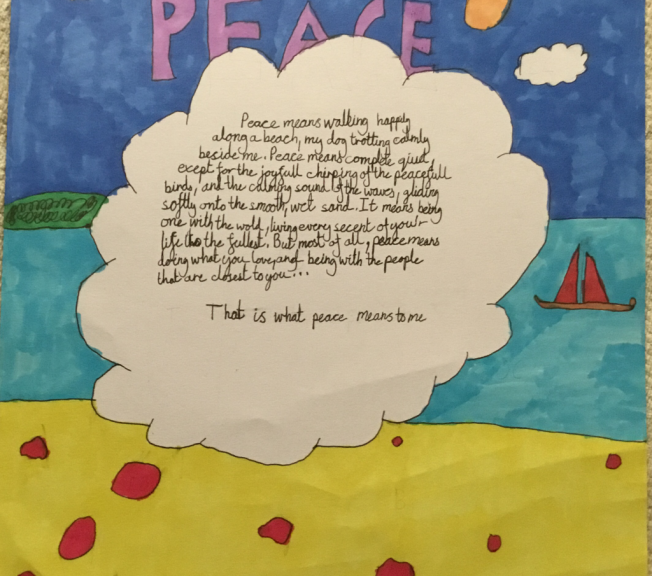 PEACE
Peace means walking happily
along a beach, my dog trotting calmly
beside me. Peace means complete quiet,
except for the joyfull chirping of the peacefull
birds, and the calming sound of the waves, gliding
softly onto the smooth, wet sand. It means being
one with the wold, living every secent of your
life to the fullest. But most of all, peace means
doing what you love, and being with the people
that are closest to you...
That is what peace means to me